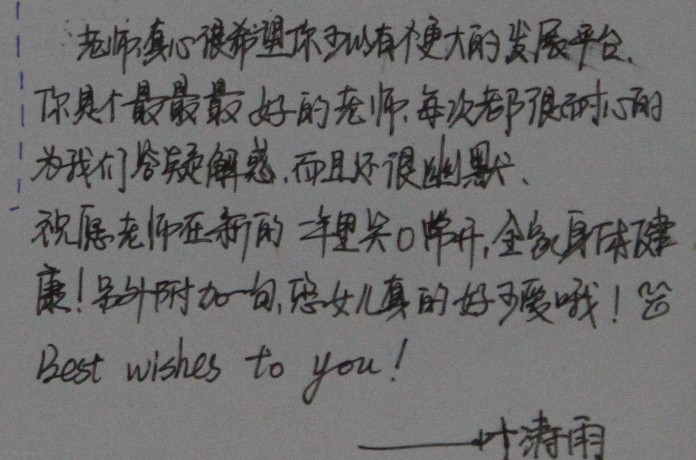 老师,真心很希望你可以有个更大的发展平台.
你是个最最最好的老师,每次都很耐心的
为我们答疑解惑,而且还很幽默、
祝愿老师在新的一年里笑口常开,全家身体健
康!另外附加一句,您女儿真的好可爱哦!
Best wishes to you!
——叶涛雨